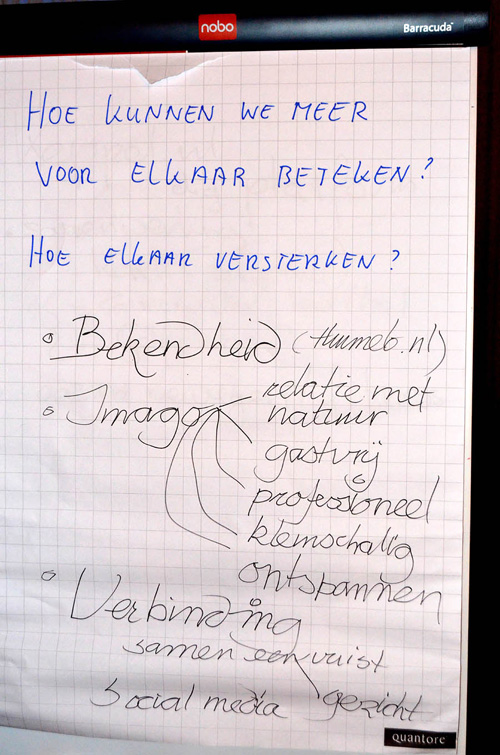 nobo
Barracuda™
HOE KUNNEN WE MEER
VOOR ELKAAR BETEKEN?
HOE ELKAAR VERSTERKEN?
Bekendheid
Imago
relatie met
natuur
gastvrij
professioneel
kleinschalig
ontspannen
Verbinding
samen een vuist
social media gezicht
quantore